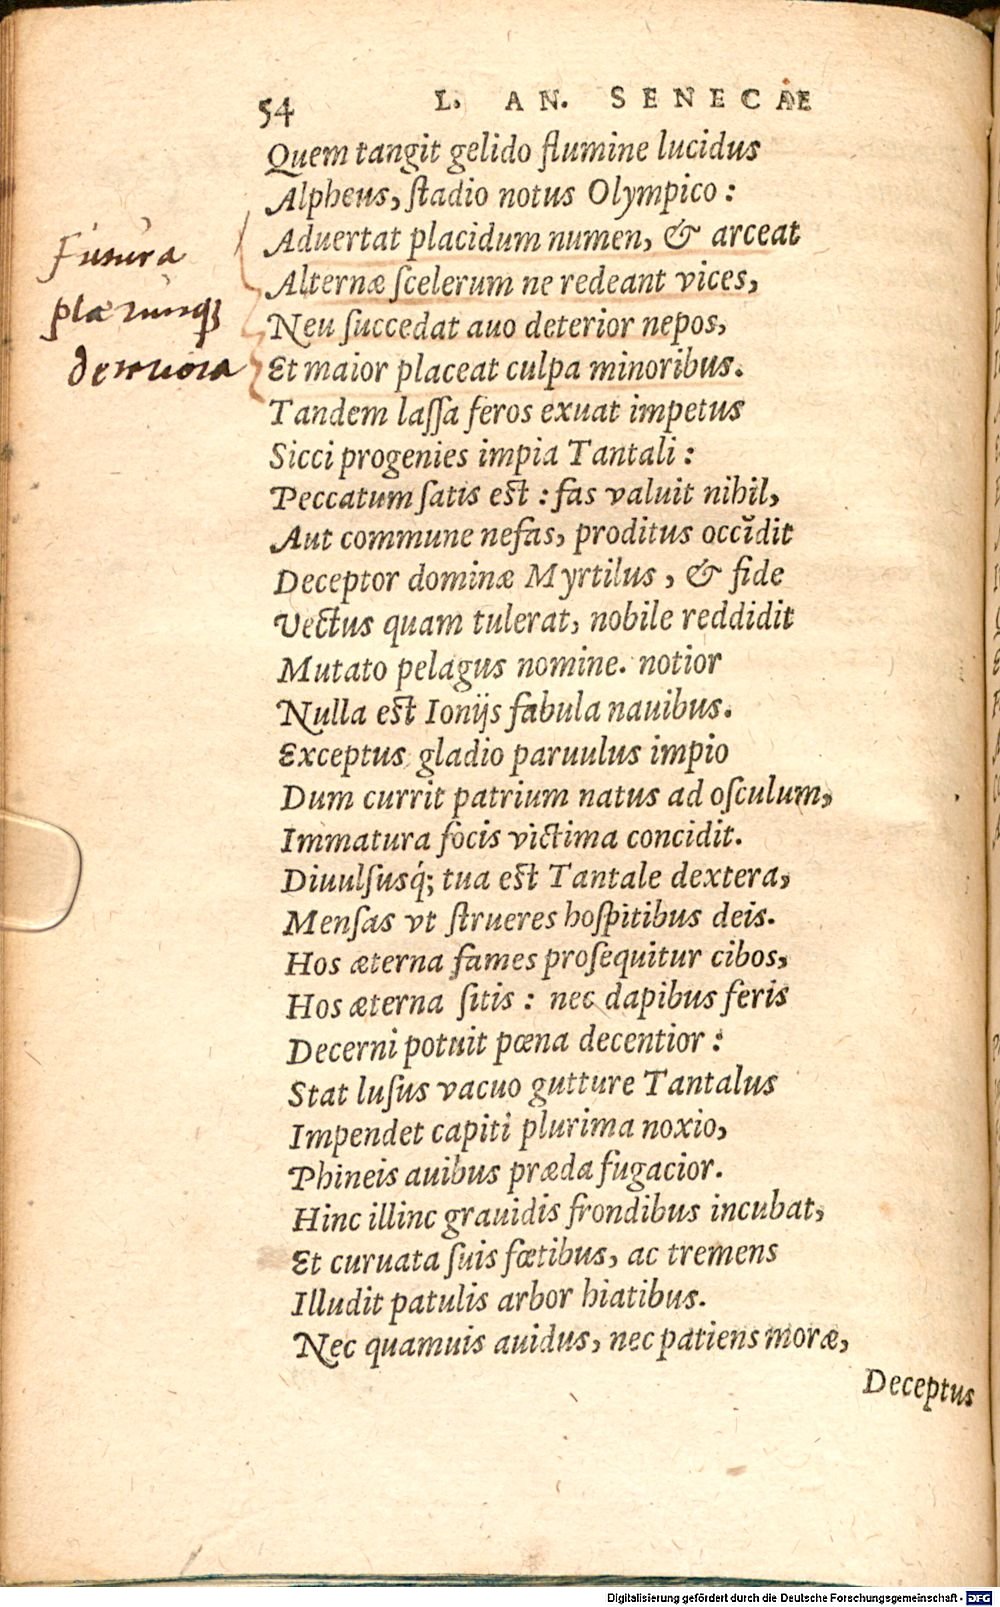 54 L. AN. SENECAE
Quem tangit gelido flumine lucidus
Alpheus, ſtadio notus Olympico :
Aduertat placidum numen, & arceat
Alternæ ſcelerum ne redeant vices,
Neu ſuccedat auo deterior nepos,
Et maior placeat culpa minoribus.
Futura
plærunq;
deteriora
Tandem laſſa feros exuat impetus
Sicci progenies impia Tantali :
Peccatum ſatis eſt : fas valuit nihil,
Aut commune nefas, proditus occĭdit
Deceptor dominæ Myrtilus, & fide
Vectus quam tulerat, nobile reddidit
Mutato pelagus nomine. notior
Nulla eſt Ionijs fabula nauibus.
Exceptus gladio paruulus impio
Dum currit patrium natus ad oſculum,
Immatura focis victima concidit.
Diuulſusq́; tua eſt Tantale dextera,
Menſas vt ſtrueres hoſpitibus deis.
Hos æterna fames proſequitur cibos,
Hos æterna ſitis : nec dapibus feris
Decerni potuit pœna decentior :
Stat luſus vacuo gutture Tantalus
Impendet capiti plurima noxio,
Phineis auibus præda fugacior.
Hinc illinc grauidis frondibus incubat,
Et curuata ſuis fœtibus, ac tremens
Illudit patulis arbor hiatibus.
Nec quamuis auidus, nec patiens moræ,
Deceptus
Digitalisierung gefördert durch die Deutsche Forschungsgemeinschaft - DFG